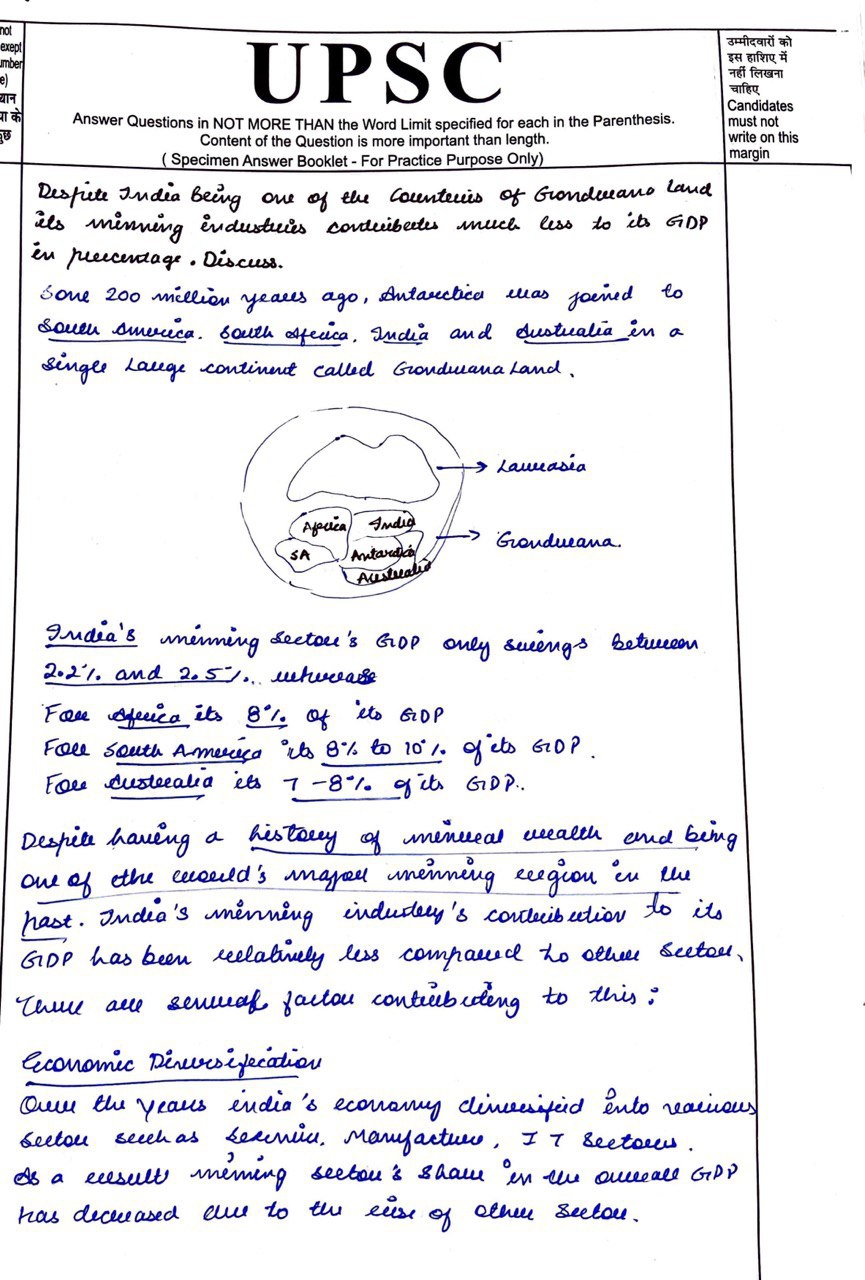 not
exept
umber
e)
थान
या के
कुछ
UPSC
Answer Questions in NOT MORE THAN the Word Limit specified for each in the Parenthesis.
Content of the Question is more important than length.
( Specimen Answer Booklet - For Practice Purpose Only)
उम्मीदवारों को
इस हाशिए में
नहीं लिखना
चाहिए
Candidates
must not
write on this
margin
Despite India being one of the Counteries of Gondwana Land
its minning industries contributes much less to its GDP
in percentage. Discuss.
Some 200 million years ago, Antarctica was joined to
South America. South Africa, India and Australia in a
Single Large continent called Gondwana Land.
Laurasia
Africa
India
SA
Antarctica
Australia
Gondwana.
India's minning sector's GDP only swings between
2.2% and 2.5%. whereas
For Africa its 8% of its GDP
For South America its 8% to 10% of its GDP.
For Australia its 7-8% of its GDP..
Despite having a history of mineral wealth and being
one of the world's major minning region in the
past. India's minning industry's contribution to its
GDP has been relatively less compared to other Sector.
There are several factor contributing to this:
Economic Diversification
Over the years india's economy diversified into various
sector such as Service, Manufacture, IT Sectors.
As a result mining sector's share in the overall GDP
has decreased due to the rise of other Sector.